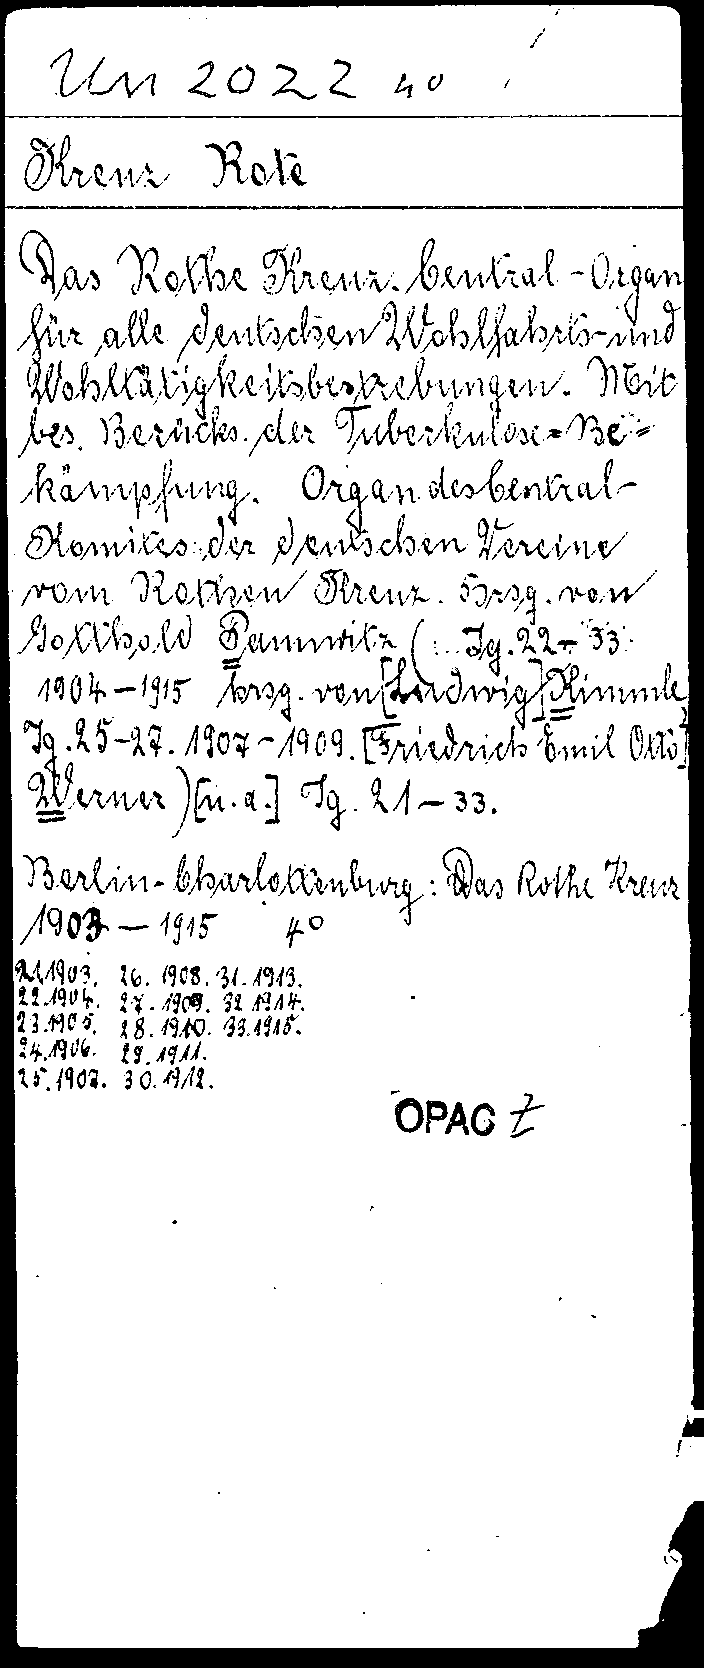 Un 2022 4°
Kreuz Rote
Das Rothe Kreuz. Central-Organ
für alle deutschen Wohlfahrts- und
Wohltätigkeitsbestrebungen. Mit
bes. Berücks. der Tuberkulose-Be-
kämpfung. Organ des Central-
Komites der deutschen Vereine
vom Rothen Kreuz. Hrsg. von
Gotthold Pannwitz (... Jg. 22-33
1904-1915 hrsg. von [Ludwig] Kimmle
Jg. 25-27. 1907-1909. [Friedrich Emil Otto]
Werner) [u.a.] Jg. 21-33.
Berlin-Charlottenburg: Das Rothe Kreuz
1903-1915 4°
21.1903. 26.1908. 31.1913.
22.1904. 27.1909. 32.1914.
23.1905. 28.1910. 33.1915.
24.1906. 29.1911.
25.1907. 30.1912.
OPAC Z